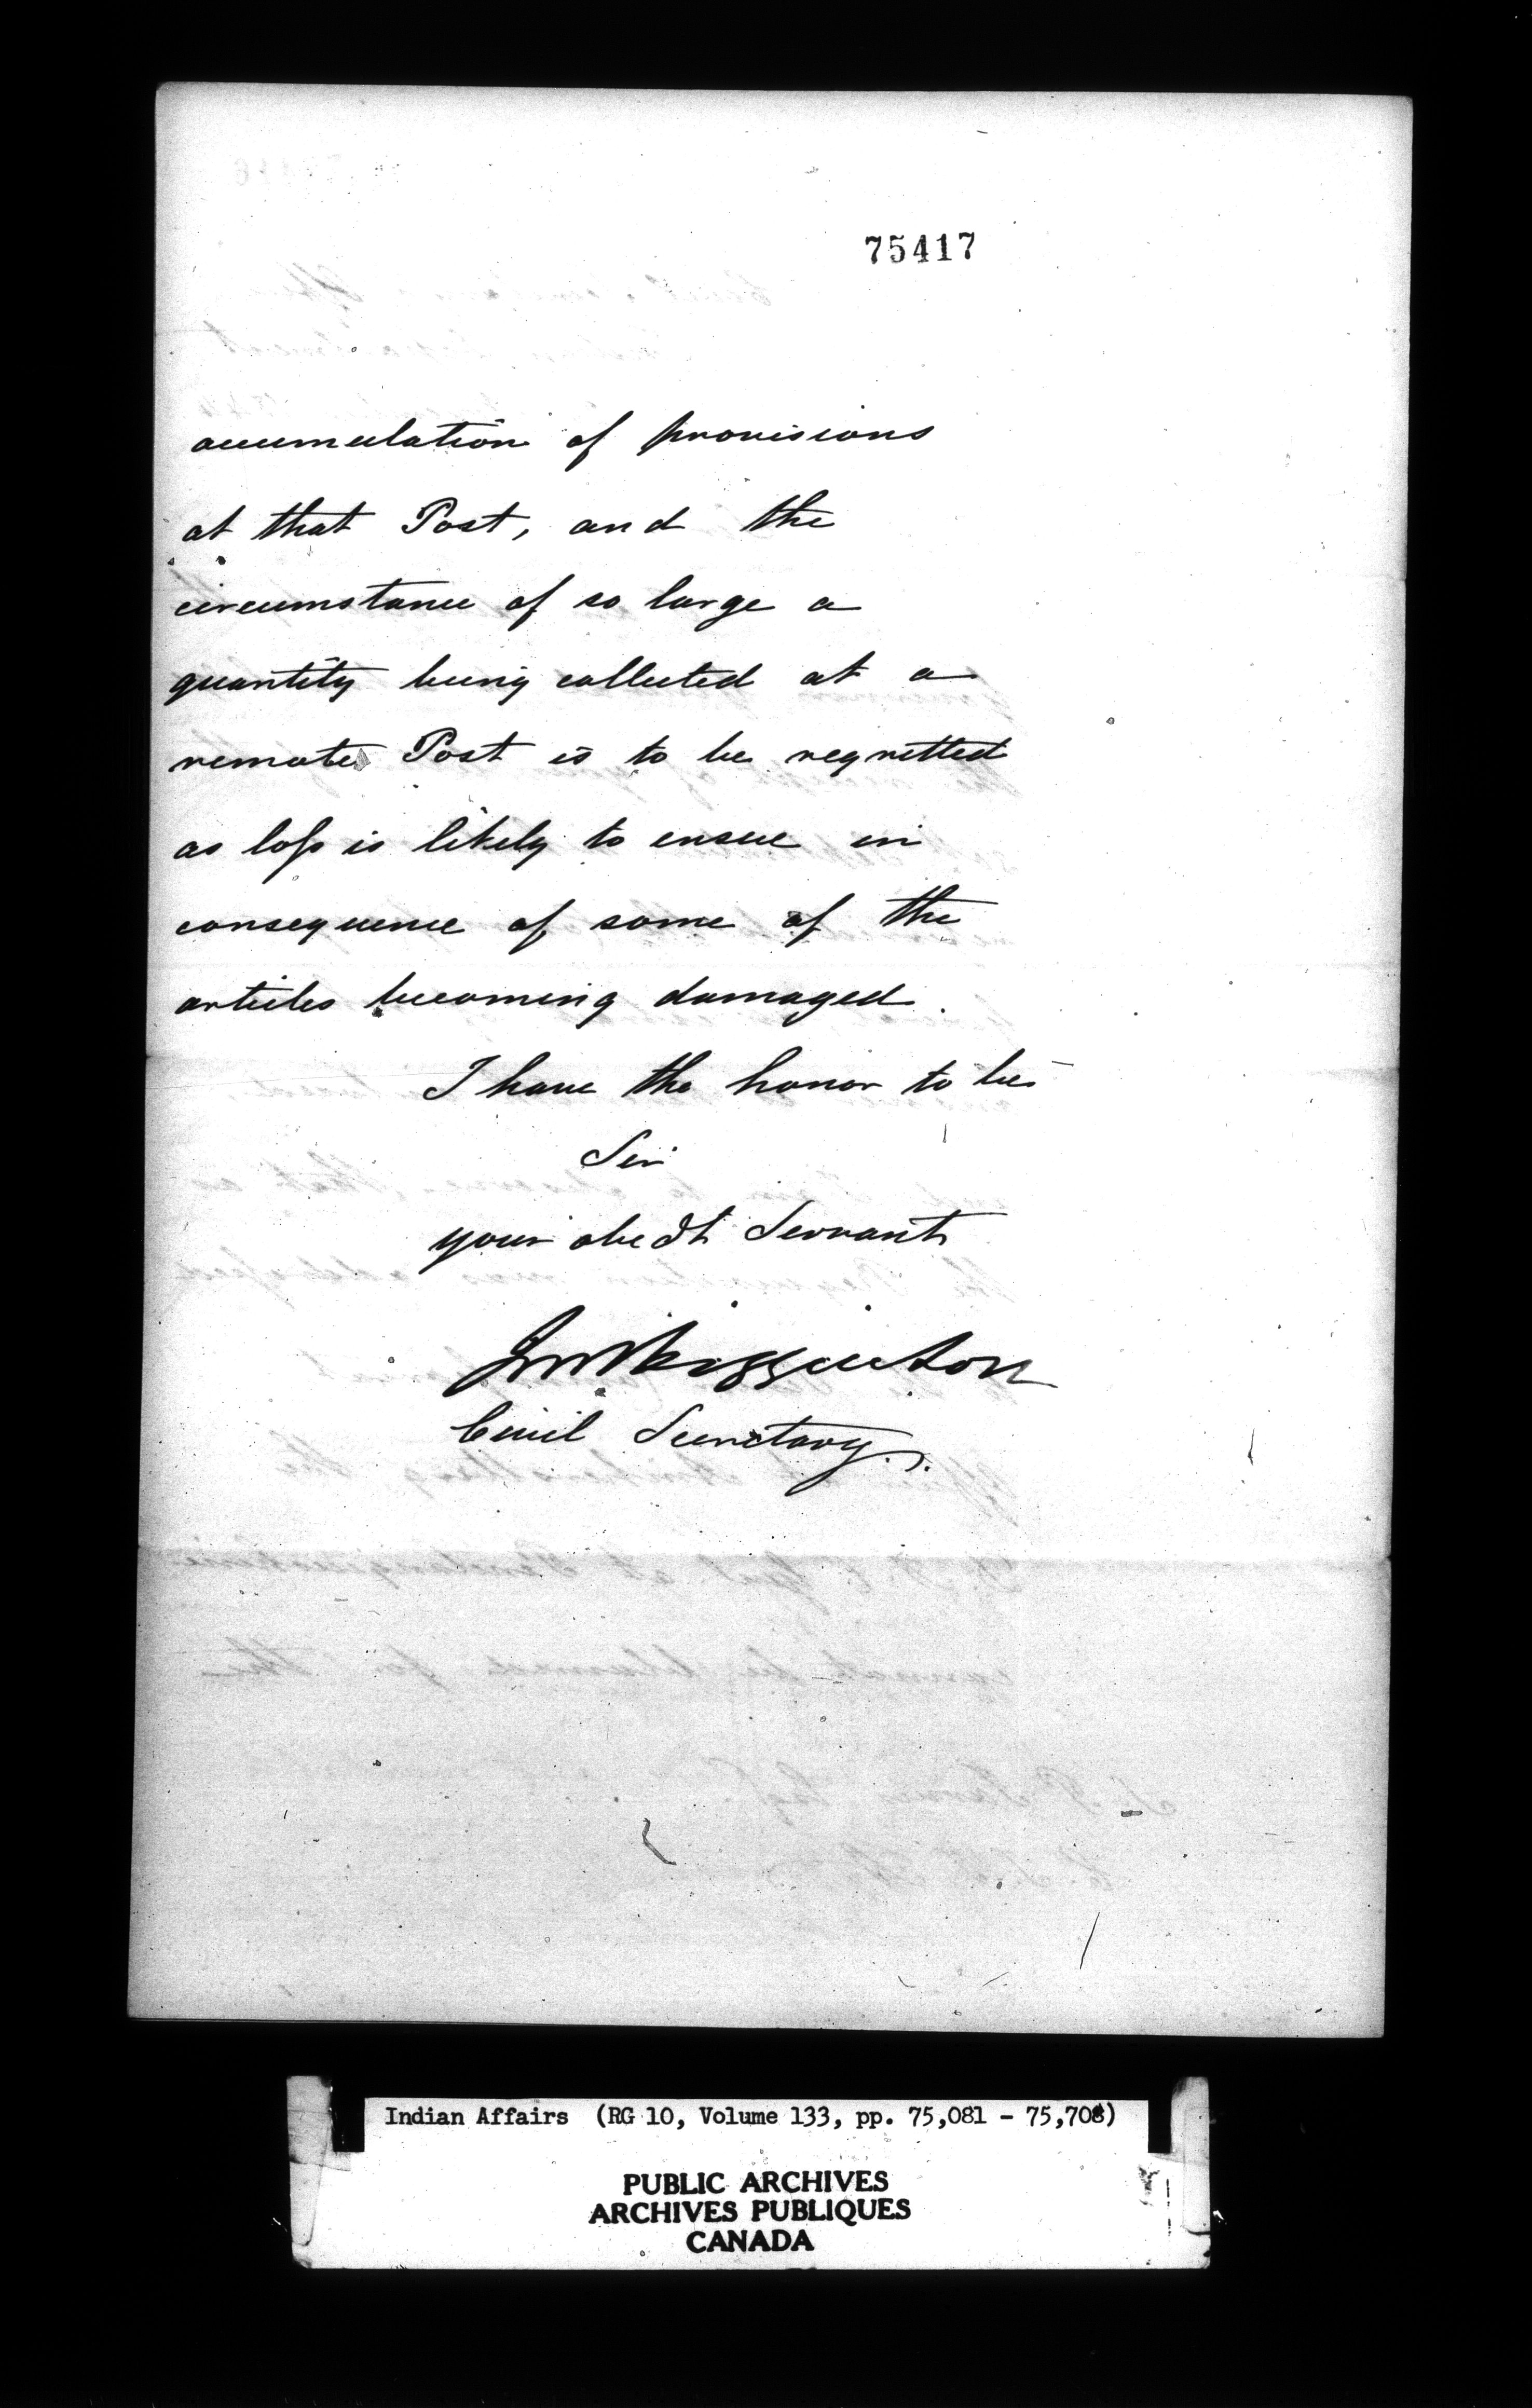 75417
accumulation of provisions
at that Post, and the
circumstance of so large a
quantity being collected at a
remote Post is to be regretted
as loss is likely to ensue in
consequence of some of the
articles becoming damaged.
I have the honor to be
Sir
your obedt Servant
JM Higginson
Civil Secretary.
Indian Affairs (RG 10, Volume 133, pp. 75,081 - 75,708)
PUBLIC ARCHIVES
ARCHIVES PUBLIQUES
CANADA